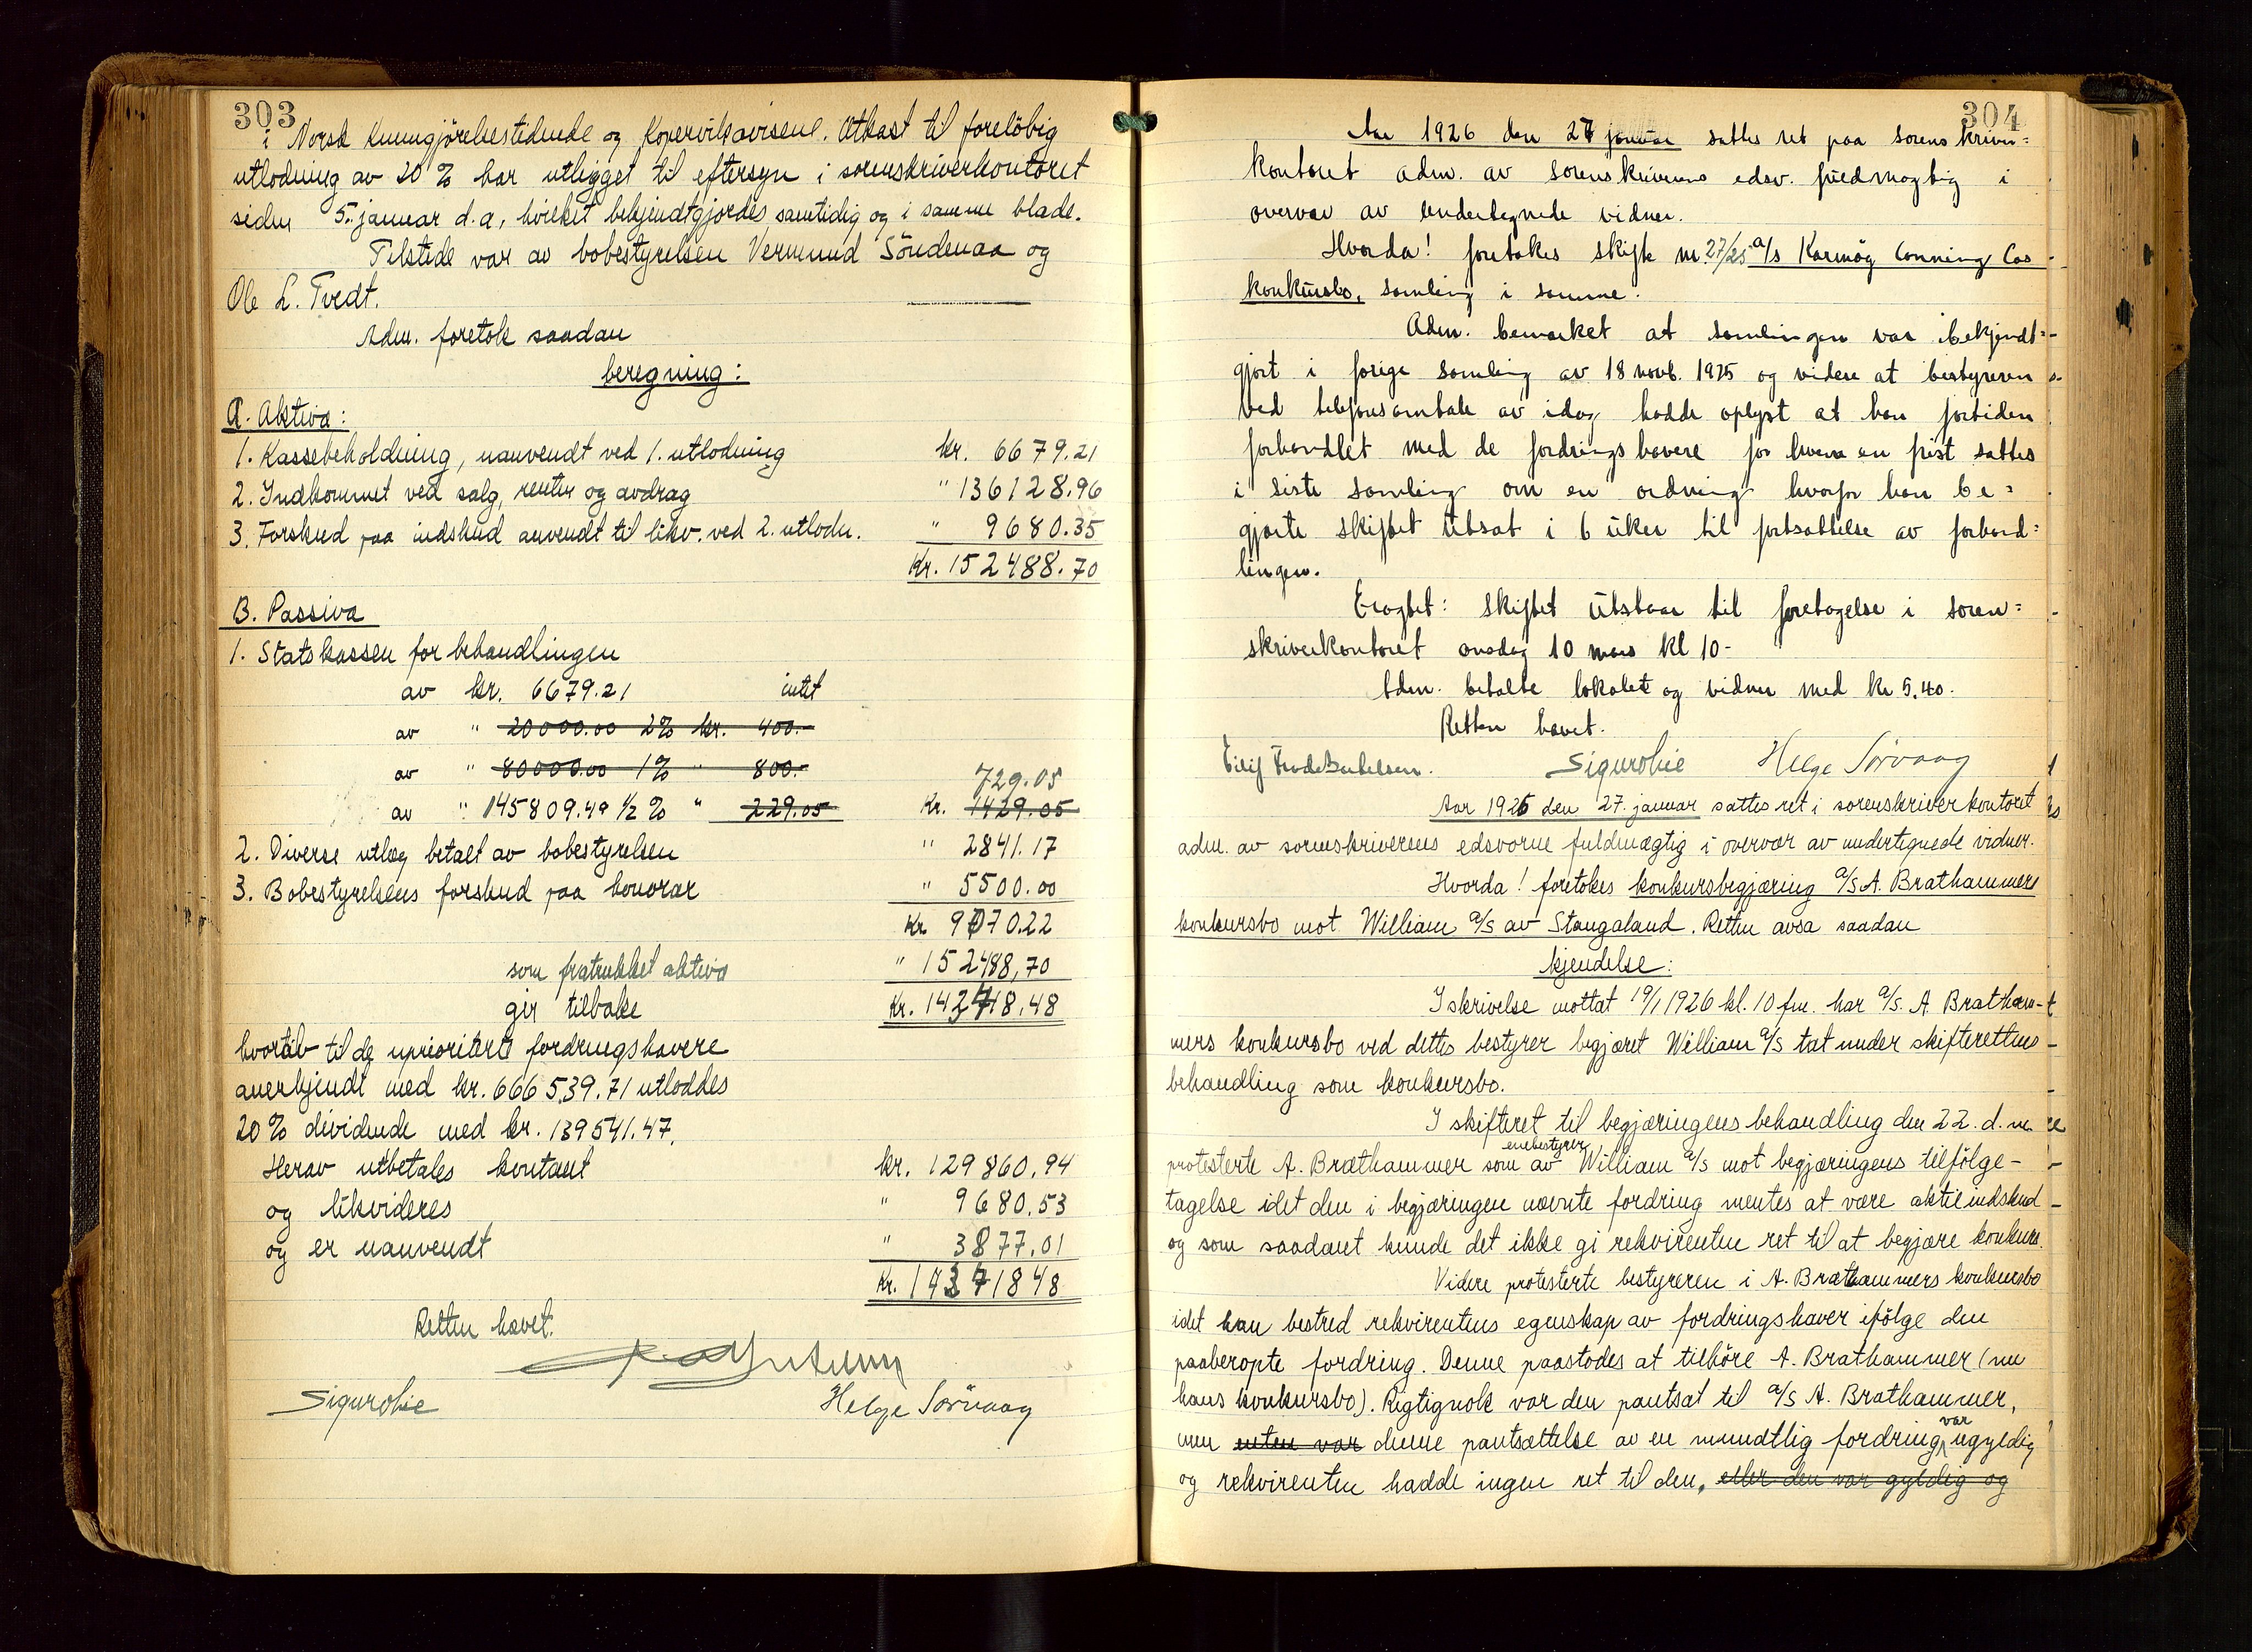 303
i Norsk Kunngjörelsestidende og Kopervikavisene. Utkast til forelöbig
utlodning av 20 % har utligget til eftersyn i sorenskriverkontoret
siden 5. januar d.a, hvilket bekjendtgjordes samtidig og i samme blade.
Tilstede var av bobestyrelsen Vermund Söndenaa og
Ole L. Tvedt.
Adm. foretok saadan
beregning:
A. Aktiva:
1. Kassebeholdning, uanvendt ved 1. utlodning kr. 6679.21
2. Indkommet ved salg, renter og avdrag " 136128.96
3. Forskud paa indskud anvendt til likv. ved 2. utlodn. " 9680.35
Kr. 152488.70
B. Passiva
1. Statskassen for behandlingen
av kr. 6679.21 intet
av " 20000.00 2% kr. 400.-
av " 80000.00 1% " 800.-
729.05
av " 145809.49 1/2 % " 229.05 Kr. 1429.05
2. Diverse utlæg betalt av bobestyrelsen " 2841.17
3. Bobestyrelsens forskud paa honorar " 5500.00
Kr 9070.22
som fratrukket aktiva " 152488,70
gir tilbake Kr. 143418,48
hvorav til de uprioriterte fordringshavere
anerkjendt med kr. 666539.71 utloddes
20% dividende med kr. 139541.47.
Herav utbetales kontant kr. 129860,94
og likvideres " 9680,53
og er uanvendt " 3877,01
Kr. 14341848
Retten hævet.
Sigurd Lie Helge Sörvaag
304
Aar 1926 den 27 januar sattes ret paa sorenskriver=
kontoret adm. av sorenskriverens edsv. fuldmægtig i
overvær av undertegnede vidner.
Hvorda! foretokes skifte nr. 27/25 a/s Karmöy Canning Cos
konkursbo, samling i samme.
Adm. bemærket at samlingen var bekjendt=
gjort i forrige samling av 18 novb. 1925 og videre at bestyreren
ved telefonsamtale av idag hadde oplyst at han fortiden
forhandlet med de fordringshavere for hvem en frist sattes
i siste samling om en ordning hvorfor han be=
gjærte skiftet utsat i 6 uker til fortsættelse av forhand=
lingen.
Eragtet: Skiftet utstaar til foretagelse i soren=
skriverkontoret onsdag 10 mars kl 10-
Adm. betalte lokalet og vidner med kr 5,40.
Retten hævet.
Sigurd Lie Helge Sörvaag
Aar 1926 den 27. januar sattes ret i sorenskriverkontoret
adm. av sorenskriverens edsvorne fuldmægtig i overvær av undertegnede vidner.
Hvorda! foretokes konkursbegjæring a/s A. Brathammers
konkursbo mot William a/s av Stangaland. Retten avsa saadan
kjendelse:
I skrivelse mottat 19/1 1926 kl. 10 fm. har a/s. A. Bratham-
mers konkursbo ved dettes bestyrer begjæret William a/s tat under skifterettens
behandling som konkursbo.
I skifteret til begjæringens behandling den 22. d. m
protesterte A. Brathammer som enebestyrer av William a/s mot begjæringens tilfölge-
tagelse idet den i begjæringen nævnte fordring mentes at være aktieindskud
og som saadant kunde det ikke gi rekvirenten ret til at begjære konkurs.
Videre protesterte bestyreren i A. Brathammers konkursbo
idet han bestred rekvirentens egenskap av fordringshaver ifölge den
paaberopte fordring. Denne paastodes at tilhöre A. Brathammer (nu
hans konkursbo). Rigtignok var den pantsat til a/s A. Brathammer,
men enten var denne pantsættelse av en mundtlig fordring var ugyldig
og rekvirenten hadde ingen ret til den, eller den var gyldig og